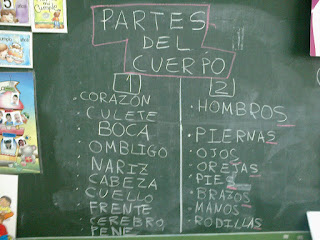 PARTES
DEL
CUERPO
1
CORAZÓN
CULETE
BOCA
OMBLIGO
NARIZ
CABEZA
CUELLO
FRENTE
CEREBRO
PENE
2
HOMBROS
PIERNAS
OJOS
OREJAS
PIES
BRAZOS
MANOS
RODILLAS